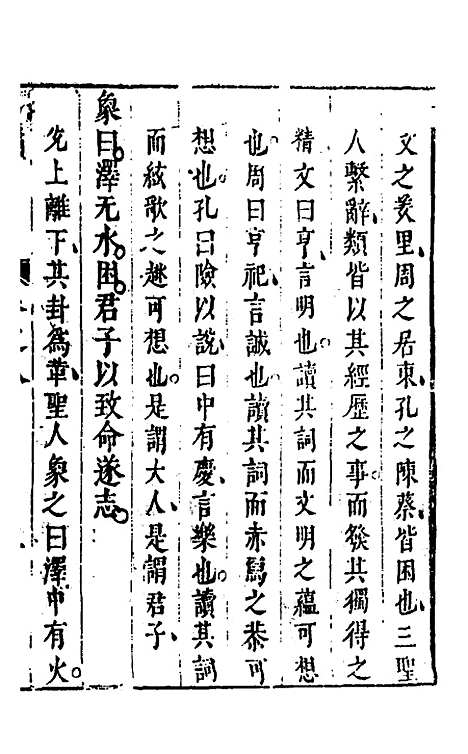 文之羑里周之居東孔之陳蔡皆困也三聖
人繫辭類皆以其經歷之事而發其獨得之
精文曰亨言明也讀其詞而文明之蘊可想
也周曰亨祀言誠也讀其詞而赤舄之恭可
想也孔曰險以說曰中有慶言樂也讀其詞
而絃歌之趣可想也是謂大人是謂君子
象曰澤无水困君子以致命遂志
兌上離下其卦為革聖人象之曰澤中有火